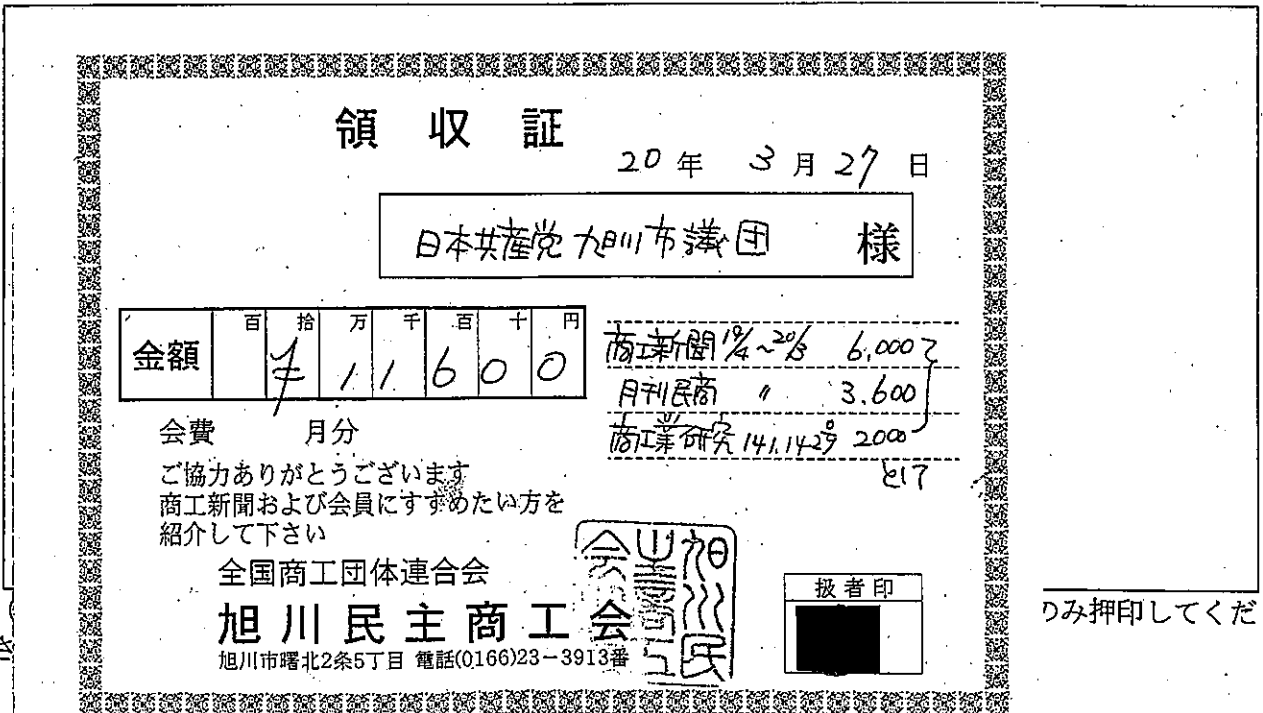 領収証
20年 3月27日
日本共産党旭川市議団 様
百 拾 万 千 百 十 円
金額 ¥11600
商工新聞 19/4~20/3 6,000
月刊民商 〃 3.600
商工業研究 141.142号 2000
として
会費 月分
ご協力ありがとうございます
商工新聞および会員にすすめたい方を
紹介して下さい
全国商工団体連合会
旭川民主商工会
旭川市曙北2条5丁目 電話(0166)23-3913番
旭川民
主商工
会
扱者印
のみ押印してくだ